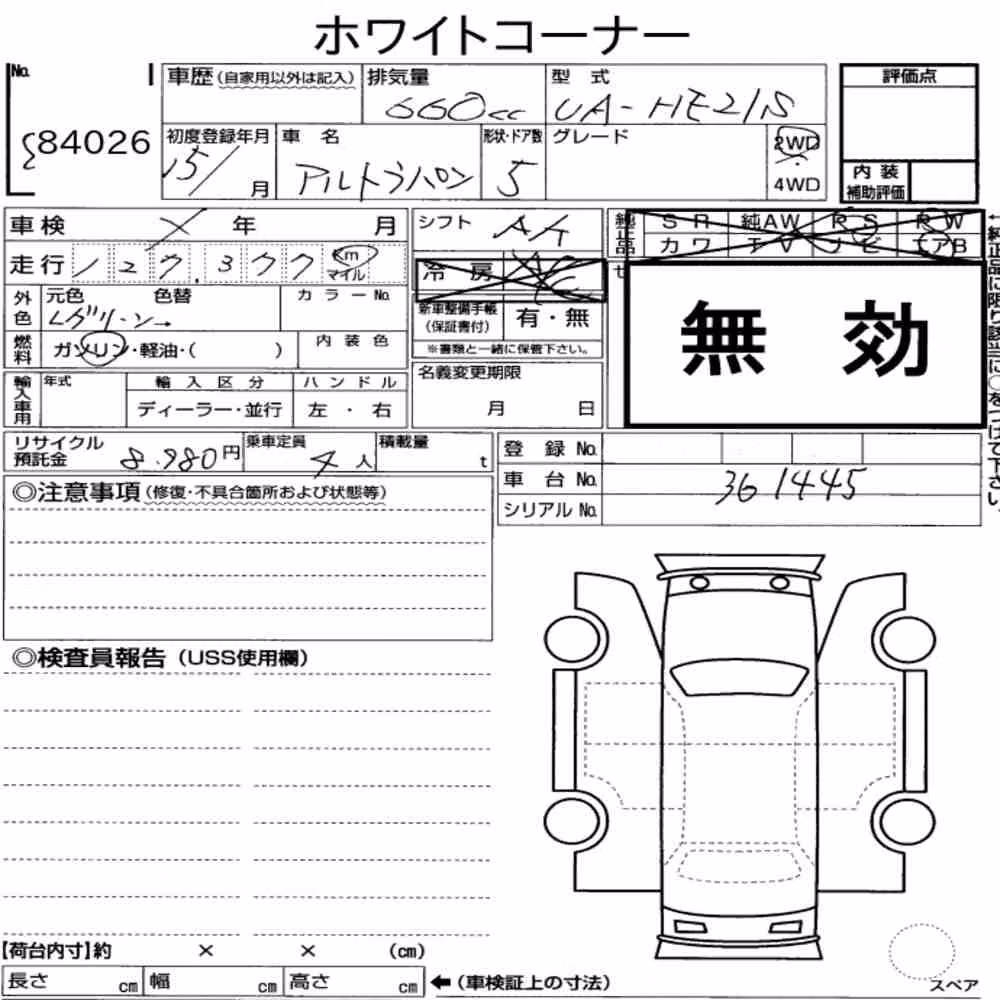 ホワイトコーナー
No. 84026
車歴(自家用以外は記入) 排気量 660cc 型式 UA-HE21S 評価点
初度登録年月 15/ 月 車名 アルトラパン 形状・ドア数 5 グレード 2WD 4WD
内装補助評価
車検 × 年 月 シフト 純正品 SR 純AW RS RW
カワ TV ナビ エアB
走行 127,377 km マイル 冷房 AC
外色 元色 色替 カラーNo.
Lグリーン→
新車整備手帳(保証書付) 有・無
※書類と一緒に保管下さい。
無効
←純正品に限り該当に○をつけて下さい。
燃料 ガソリン・軽油・( ) 内装色
輸入車用 年式 輸入区分 ハンドル
ディーラー・並行 左・右
名義変更期限
月 日
リサイクル預託金 8,980円 乗車定員 4人 積載量 t
登録No.
車台No. 361445
シリアルNo.
◎注意事項(修復・不具合箇所および状態等)
◎検査員報告(USS使用欄)
【荷台内寸】約 × × (cm)
長さ cm 幅 cm 高さ cm ←(車検証上の寸法)
スペア